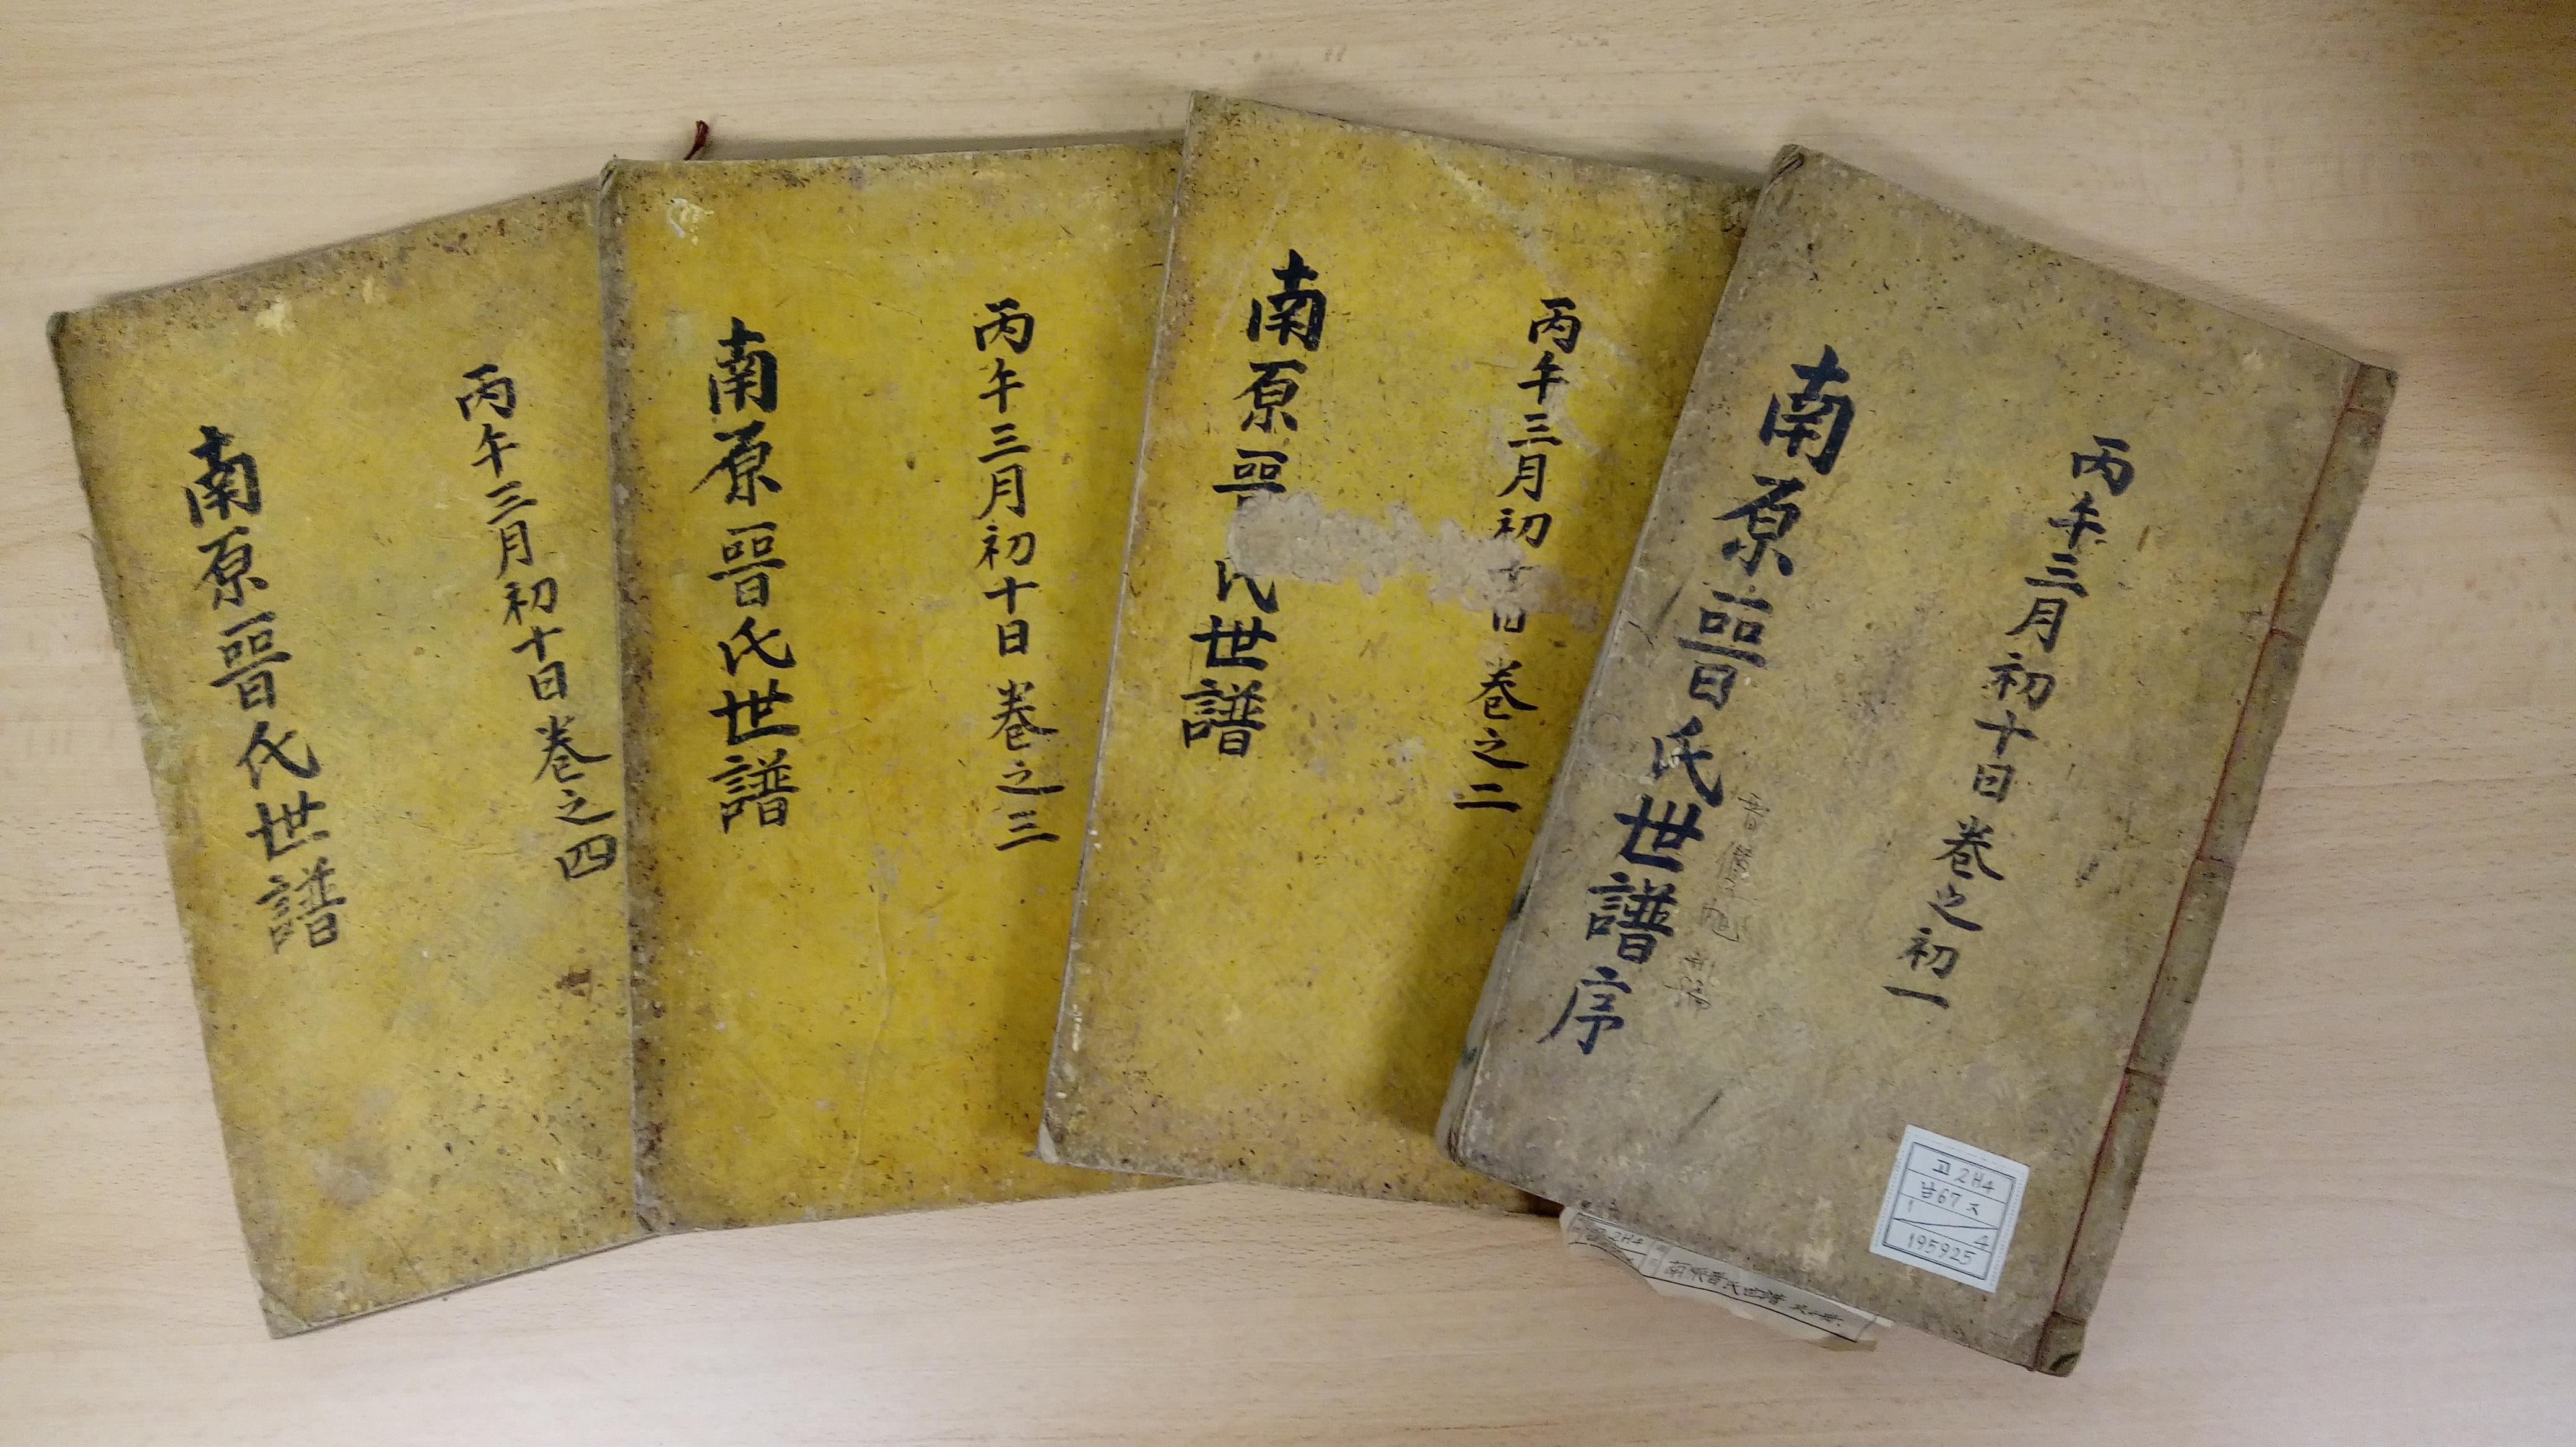 丙午三月初十日 卷之初一
南原晉氏世譜序
고2H4
남67ㅈ
1
4
195925
丙午三月初 日 卷之二
南原晉氏世譜
丙午三月初十日 卷之三
南原晉氏世譜
丙午三月初十日 卷之四
南原晉氏世譜
2H4
南原晉氏世譜